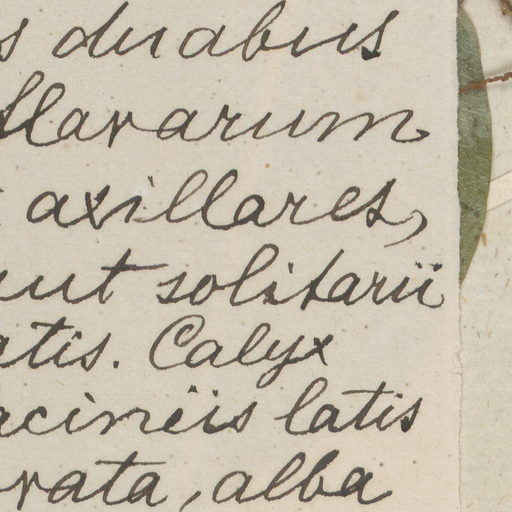 s duabus
flavarum
axillares,
aut solitarii
atis. Calyx
aciniis latis
rata, alba